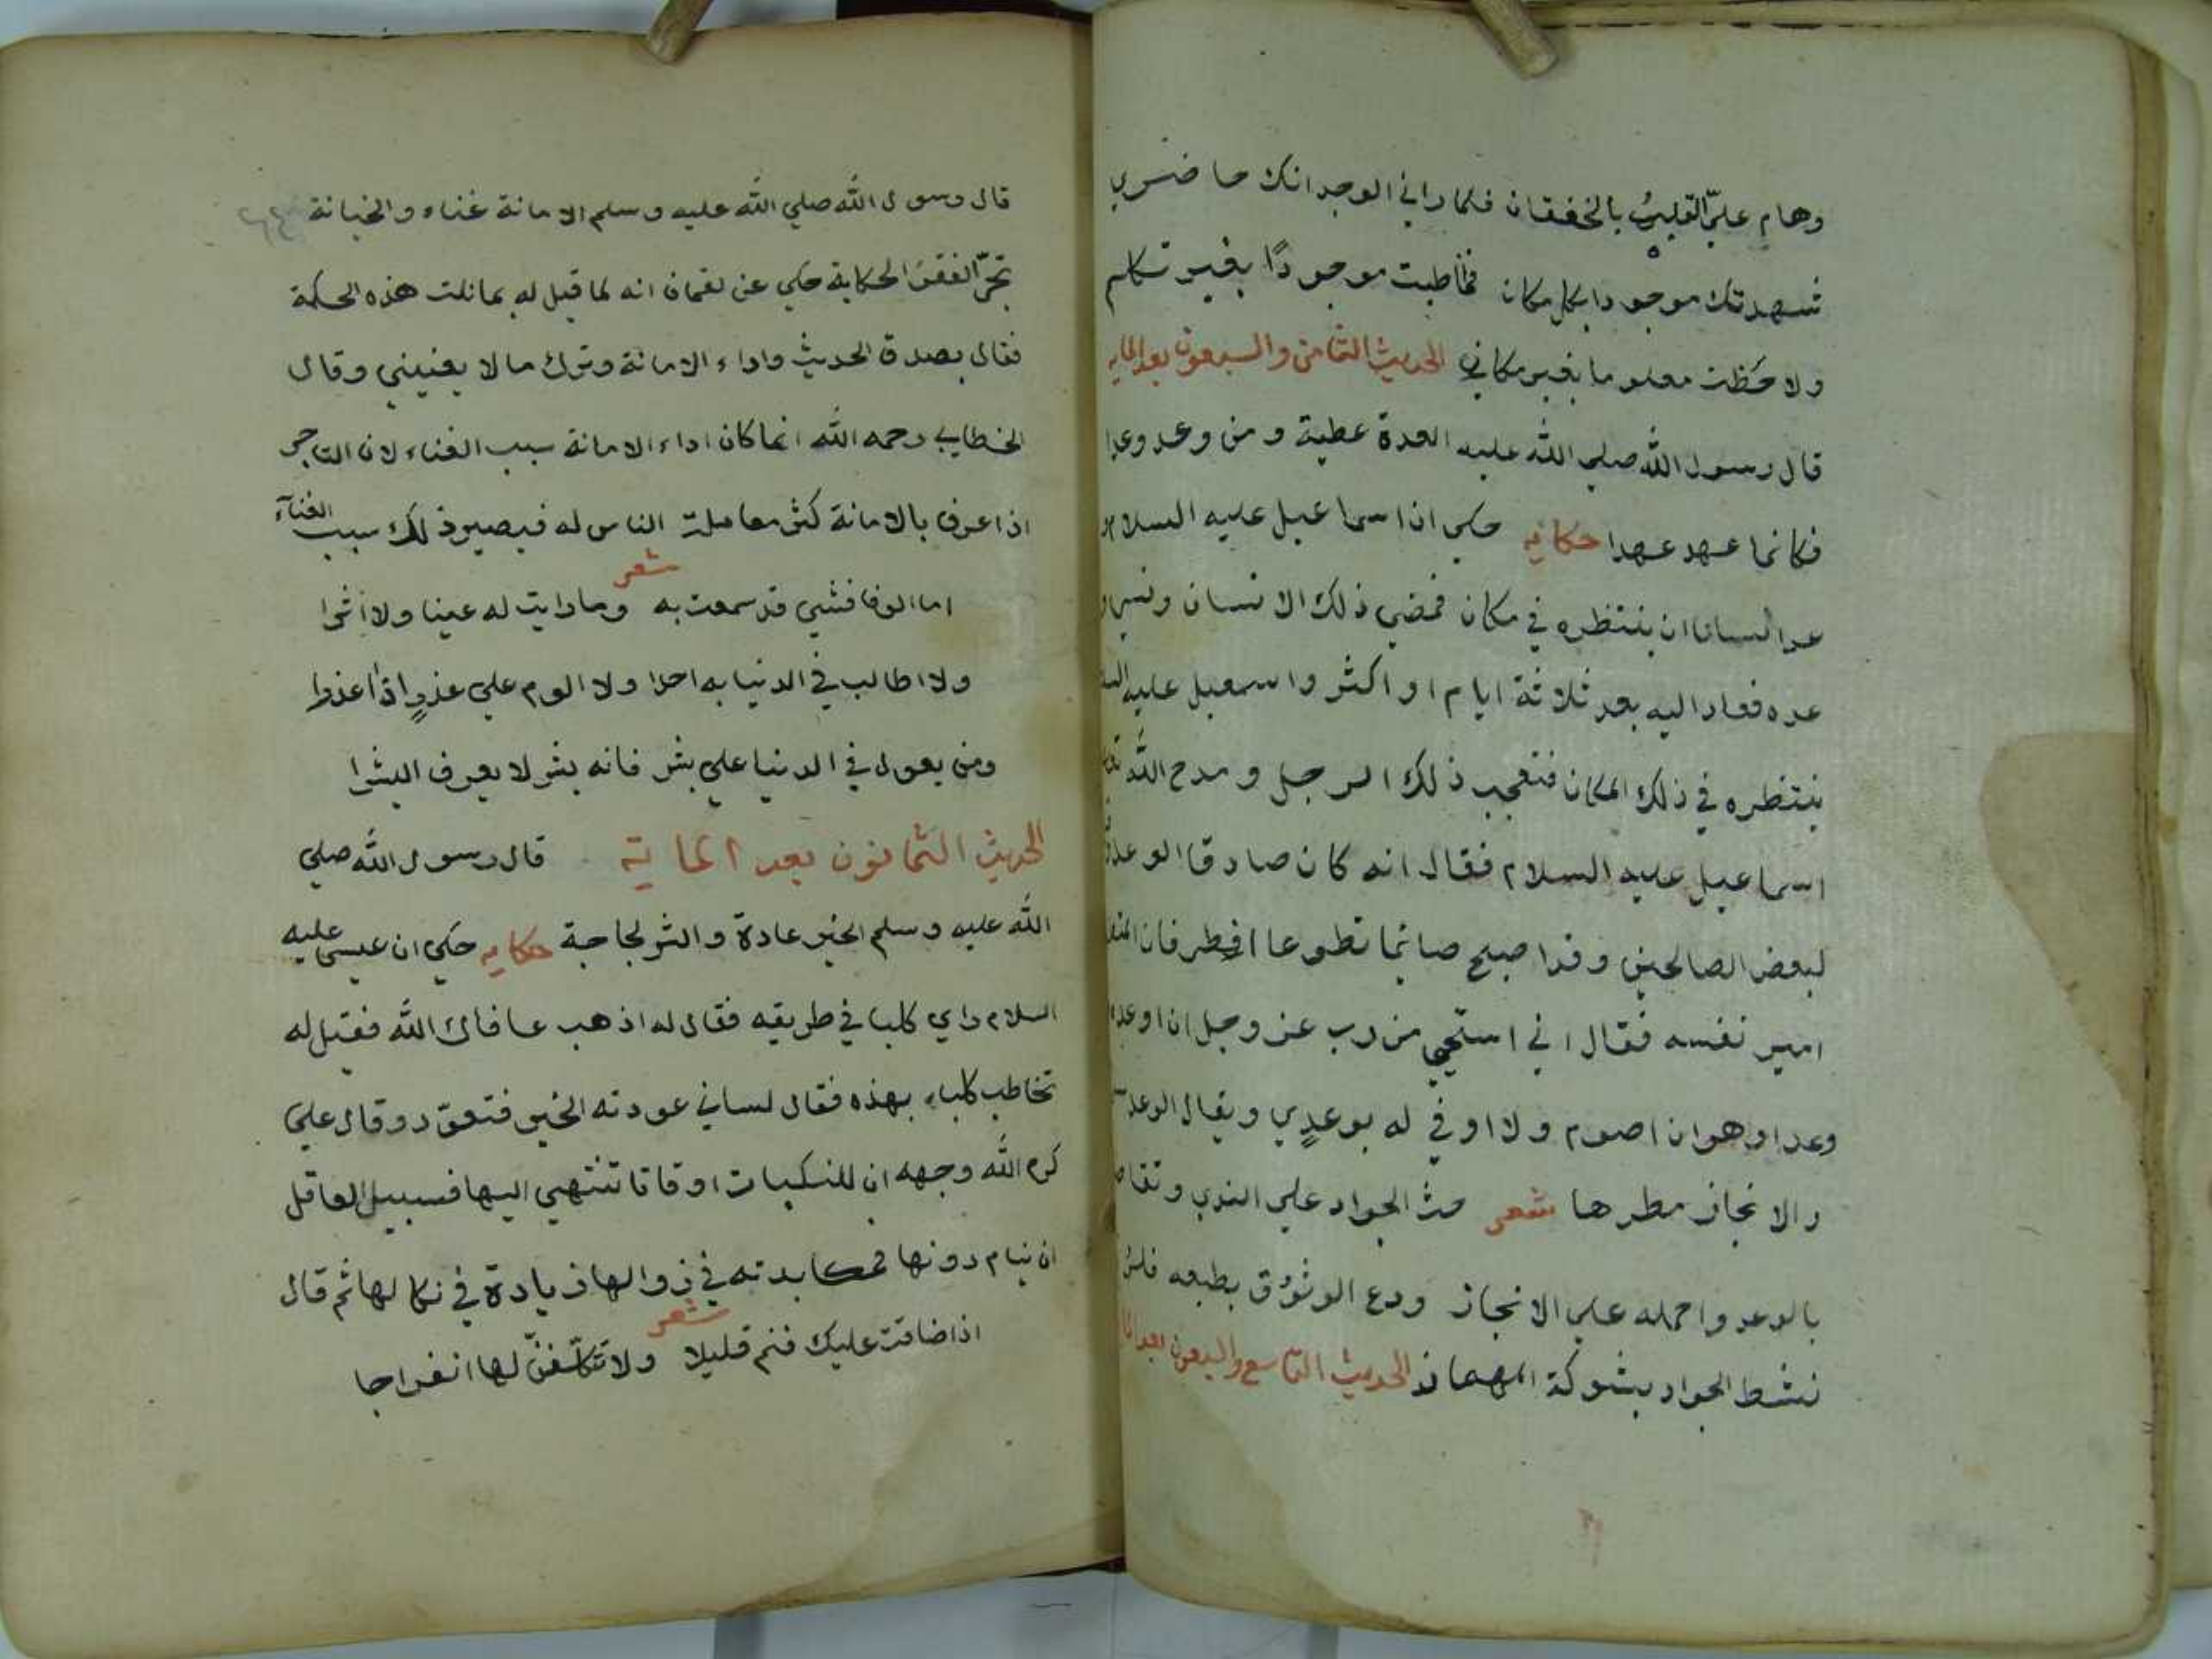 وهام عليّ القلبُ بالخفقان فلما راني الوجد انك حاضري
شهدتك موجودا بكل مكان فخاطبت موجودًا بغير تكلم
ولاحَظت معلوما بغير مكاني الحديث الثامن والسبعون بعد المايه
قال رسول الله صلي الله عليه العدة عطية ومن وعد وعدا
فكانما عهد عهدا حكايه حكي ان اسماعيل عليه السلام
عد انسانا ان ينتظره في مكان فمضي ذلك الانسان ونسي
عده فعاد اليه بعد ثلاثة ايام او اكثر واسمعيل عليه
ينتظره في ذلك المكان فتعجب ذلك الرجل ومدح الله
اسماعيل عليه السلام فقال انه كان صادق الوعد
لبعض الصالحين وقد اصبح صائما تطوعا افطر فان
امير نفسه فقال اني استحيي من رب عز وجل ان اوعده
وعدا وهو ان اصوم ولا اوفي له بوعدٍي ويقال الوعد
والانجاز مطرها شعر حث الجواد علي الندي وتقا
بالوعد واحمله علي الانجاز ودع الوثوق بطبعه
نشط الجواد بشوكة المهماز الحديث التاسع والسبعون بعد
قال رسول الله صلي الله عليه وسلم الامانة غناء والخيانة
تجرّ الفقرَ الحكاية حكي عن لقمان انه لما قيل له بما نلت هذه الحكمة
فقال بصدق الحديث واداء الامانة وترك مالا يعنيني وقال
الخطابي رحمه الله انما كان اداء الامانة سبب الغناء لان التاجر
اذا عرف بالامانة كثر معاملة الناس له فيصير ذلك سبب الغناء
شعر
اما الوفا فشي قد سمعت به وما رايت له عينا ولا اثرا
ولا اطالب في الدنيا به احدا ولا الوم علي غدرٍ اذا غدرا
ومن يعول في الدنيا علي بشر فانه بشر لا يعرف البشرا
الحديث الثمانون بعد الماية قال رسول الله صلي
الله عليه وسلم الخير عادة والشر لجاجة حكايه حكي ان عيسي عليه
السلام راي كلبا في طريقه فقال له اذهب عافاك الله فقيل له
تخاطب كلبا بهذه فقال لساني عودته الخير فتعوّد وقال علي
كرم الله وجهه ان للنكبات اوقاتا تنتهي اليها فسبيل العاقل
ان ينام دونها فمكابدته في زوالها زيادة في نكالها ثم قال
شعر
اذا ضاقت عليك فنم قليلا ولا تتكلّفنّ لها انفراجا